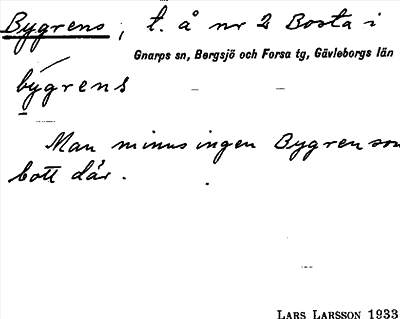 Bygrens, t. å nr 2 Bosta i
Gnarps sn, Bergsjö och Forsa tg, Gävleborgs län
býgrens
Man minns ingen Bygren som
bott där.
LARS LARSSON 1933